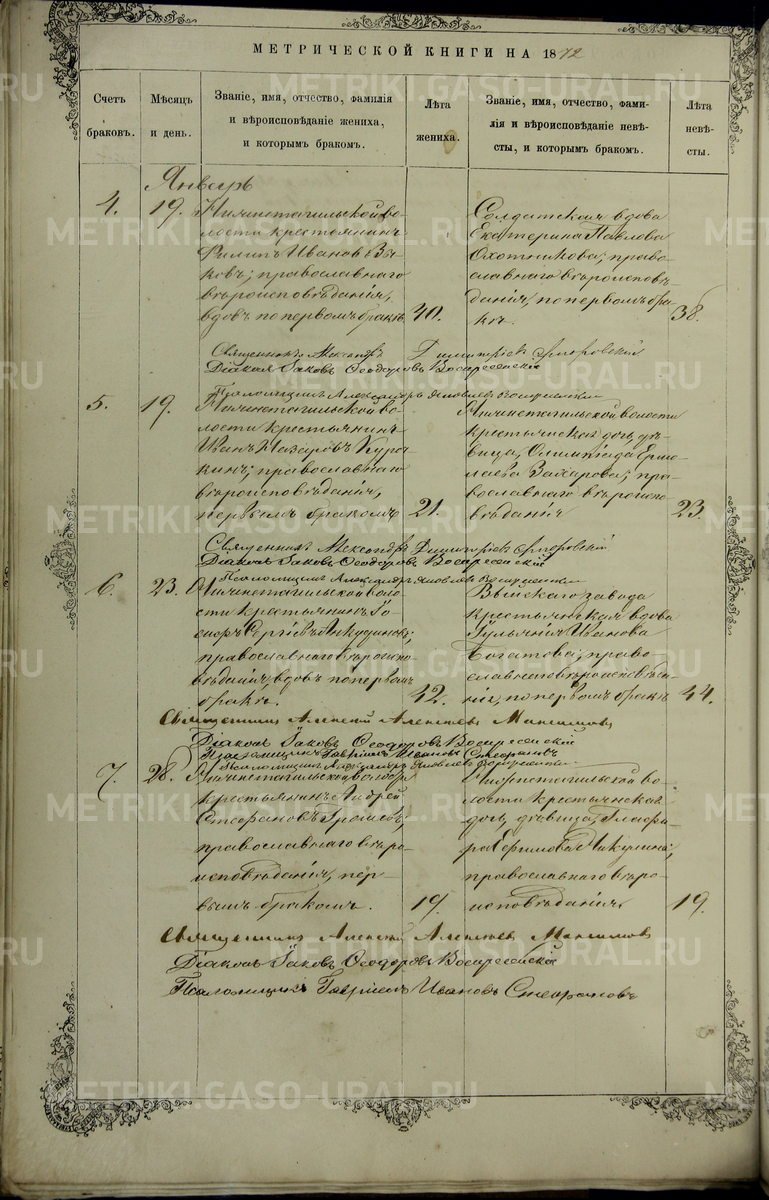 МЕТРИЧЕСКОЙ КНИГИ НА 1872
Счетъ браковъ.
Мѣсяцъ и день.
Званіе, имя, отчество, фамилія
и вѣроисповѣданіе жениха,
и которымъ бракомъ.
Лѣта жениха.
Званіе, имя, отчество, фами-
лія и вѣроисповѣданіе невѣ-
сты, и которымъ бракомъ.
Лѣта невѣ-
сты.
Январь
4. 19.
Нижнетагильской во-
лости крестьянинъ
Филипъ Ивановъ
православнаго
вѣроисповѣданія,
вдовъ по первомъ бракѣ
40.
Солдатская вдова
Екатерина Павлова
Охотникова; право-
славнаго вѣроисповѣ-
данія, по первомъ бра-
кѣ.
38.
Священникъ Александръ Димитріевъ
Діаконъ Іаковъ Ѳеодоровъ Воскресенскій
Псаломщикъ Александръ Яковлевъ
5. 19.
Нижнетагильской во-
лости крестьянинъ
Иванъ Назаровъ Куроч-
кинъ; православнаго
вѣроисповѣданія,
первымъ бракомъ
21.
Нижнетагильской волости
крестьянская дочь, дѣ-
вица, Олимпіада Ермо-
лаева Захарова; пра-
вославнаго вѣроиспо-
вѣданія
23.
Священникъ Александръ Димитріевъ
Діаконъ Іаковъ Ѳеодоровъ Воскресенскій
Псаломщикъ Александръ Яковлевъ
6. 23.
Нижнетагильской воло-
сти крестьянинъ Іо-
сифъ Сергіевъ
православнаго вѣроиспо-
вѣданія, вдовъ по первомъ
бракѣ.
42.
Выйскаго завода
крестьянская вдова
Іуліанія Иванова
Богатова; право-
славнаго вѣроисповѣда-
нія, по первомъ бракѣ
44.
Священникъ Алексій Алексіевъ Максимовъ
Діаконъ Іаковъ Ѳеодоровъ Воскресенскій
Псаломщикъ Гавріилъ Ивановъ Стефановъ
Псаломщикъ Александръ Яковлевъ
7. 28.
Нижнетагильской волости
крестьянинъ Андрей
Стефановъ
православнаго вѣро-
исповѣданія, пер-
вымъ бракомъ.
19.
Нижнетагильской во-
лости крестьянская
дочь, дѣвица, Глафи-
ра Ефимова Никулина;
православнаго вѣро-
исповѣданія
19.
Священникъ Алексій Алексіевъ Максимовъ
Діаконъ Іаковъ Ѳеодоровъ Воскресенскій
Псаломщикъ Гавріилъ Ивановъ Стефановъ
METRIKI.GASO-URAL.RU